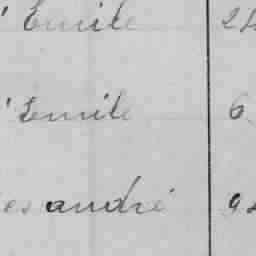 ' Emile 24
' Emile 6
es andré 92